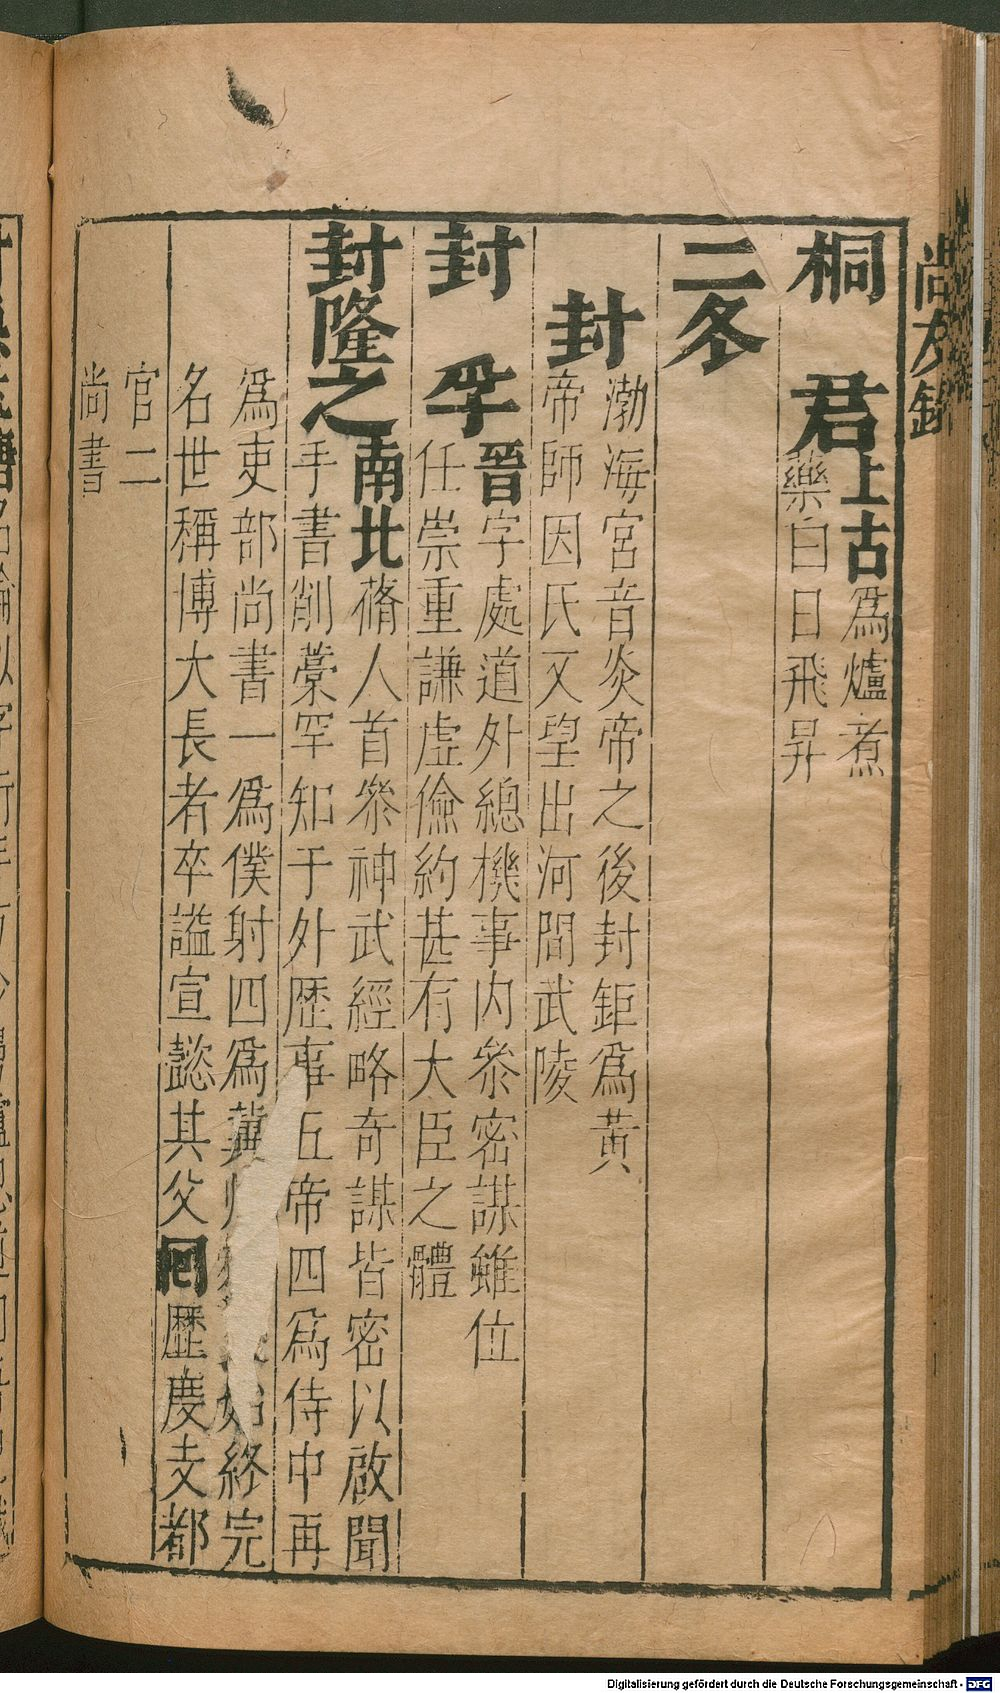 尚友錄
桐君上古爲爐煮
藥白日飛昇
二冬
封
渤海宮音炎帝之後封鉅爲黃
帝師因氏又望出河間武陵
封孚晉字處道外總機事內叅密謀雖位
任崇重謙虛儉約甚有大臣之體
封隆之南北蓨人首叅神武經略奇謀皆密以啟聞
手書削藁罕知于外歷事五帝四爲侍中再
爲吏部尚書一爲僕射四爲冀州 始終完
名世稱博大長者卒謚宣懿其父回歷度支都
官二
尚書
Digitalisierung gefördert durch die Deutsche Forschungsgemeinschaft - DFG